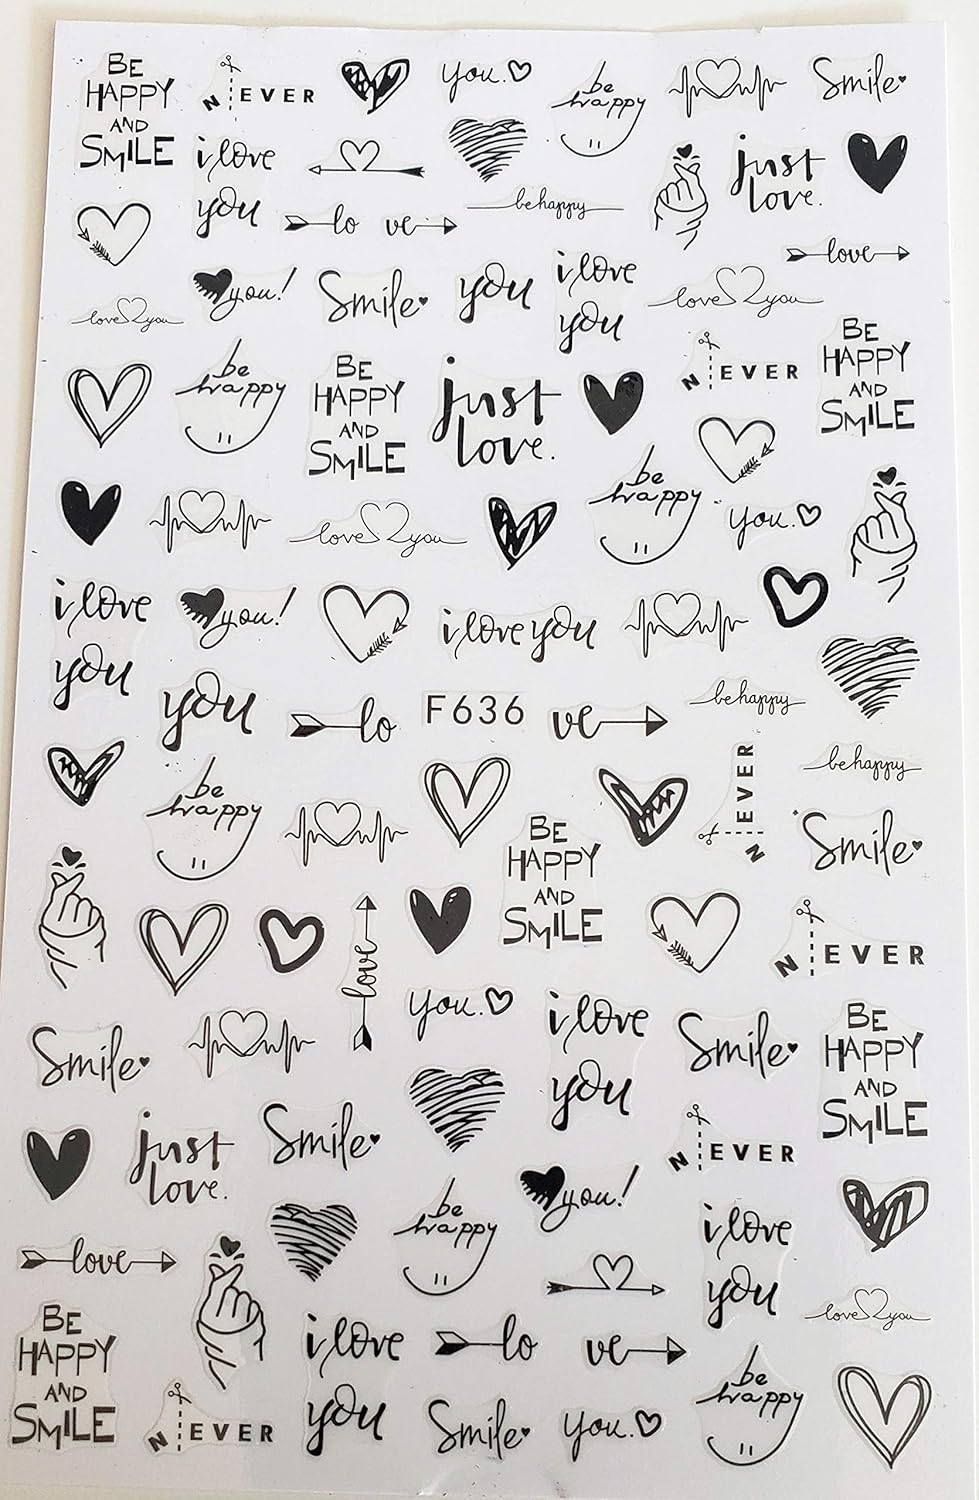 BE
HAPPY
AND
SMILE
NEVER
you.
be
happy
Smile
i love
you
just
love.
lo ve
be happy
love
love you
you!
Smile
you
i love
you
be
happy
BE
HAPPY
AND
SMILE
just
love.
NEVER
BE
HAPPY
AND
SMILE
love you
be
happy
you.
i love
you
you!
i love you
be happy
you
lo
F636
ve
be
happy
NEVER
be happy
BE
HAPPY
AND
SMILE
Smile
love
NEVER
you.
i love
you
Smile
Smile
BE
HAPPY
AND
SMILE
just
love.
Smile
NEVER
you!
be
happy
i love
you
love
love you
BE
HAPPY
AND
SMILE
i love
you
lo ve
be
happy
NEVER
Smile
you.